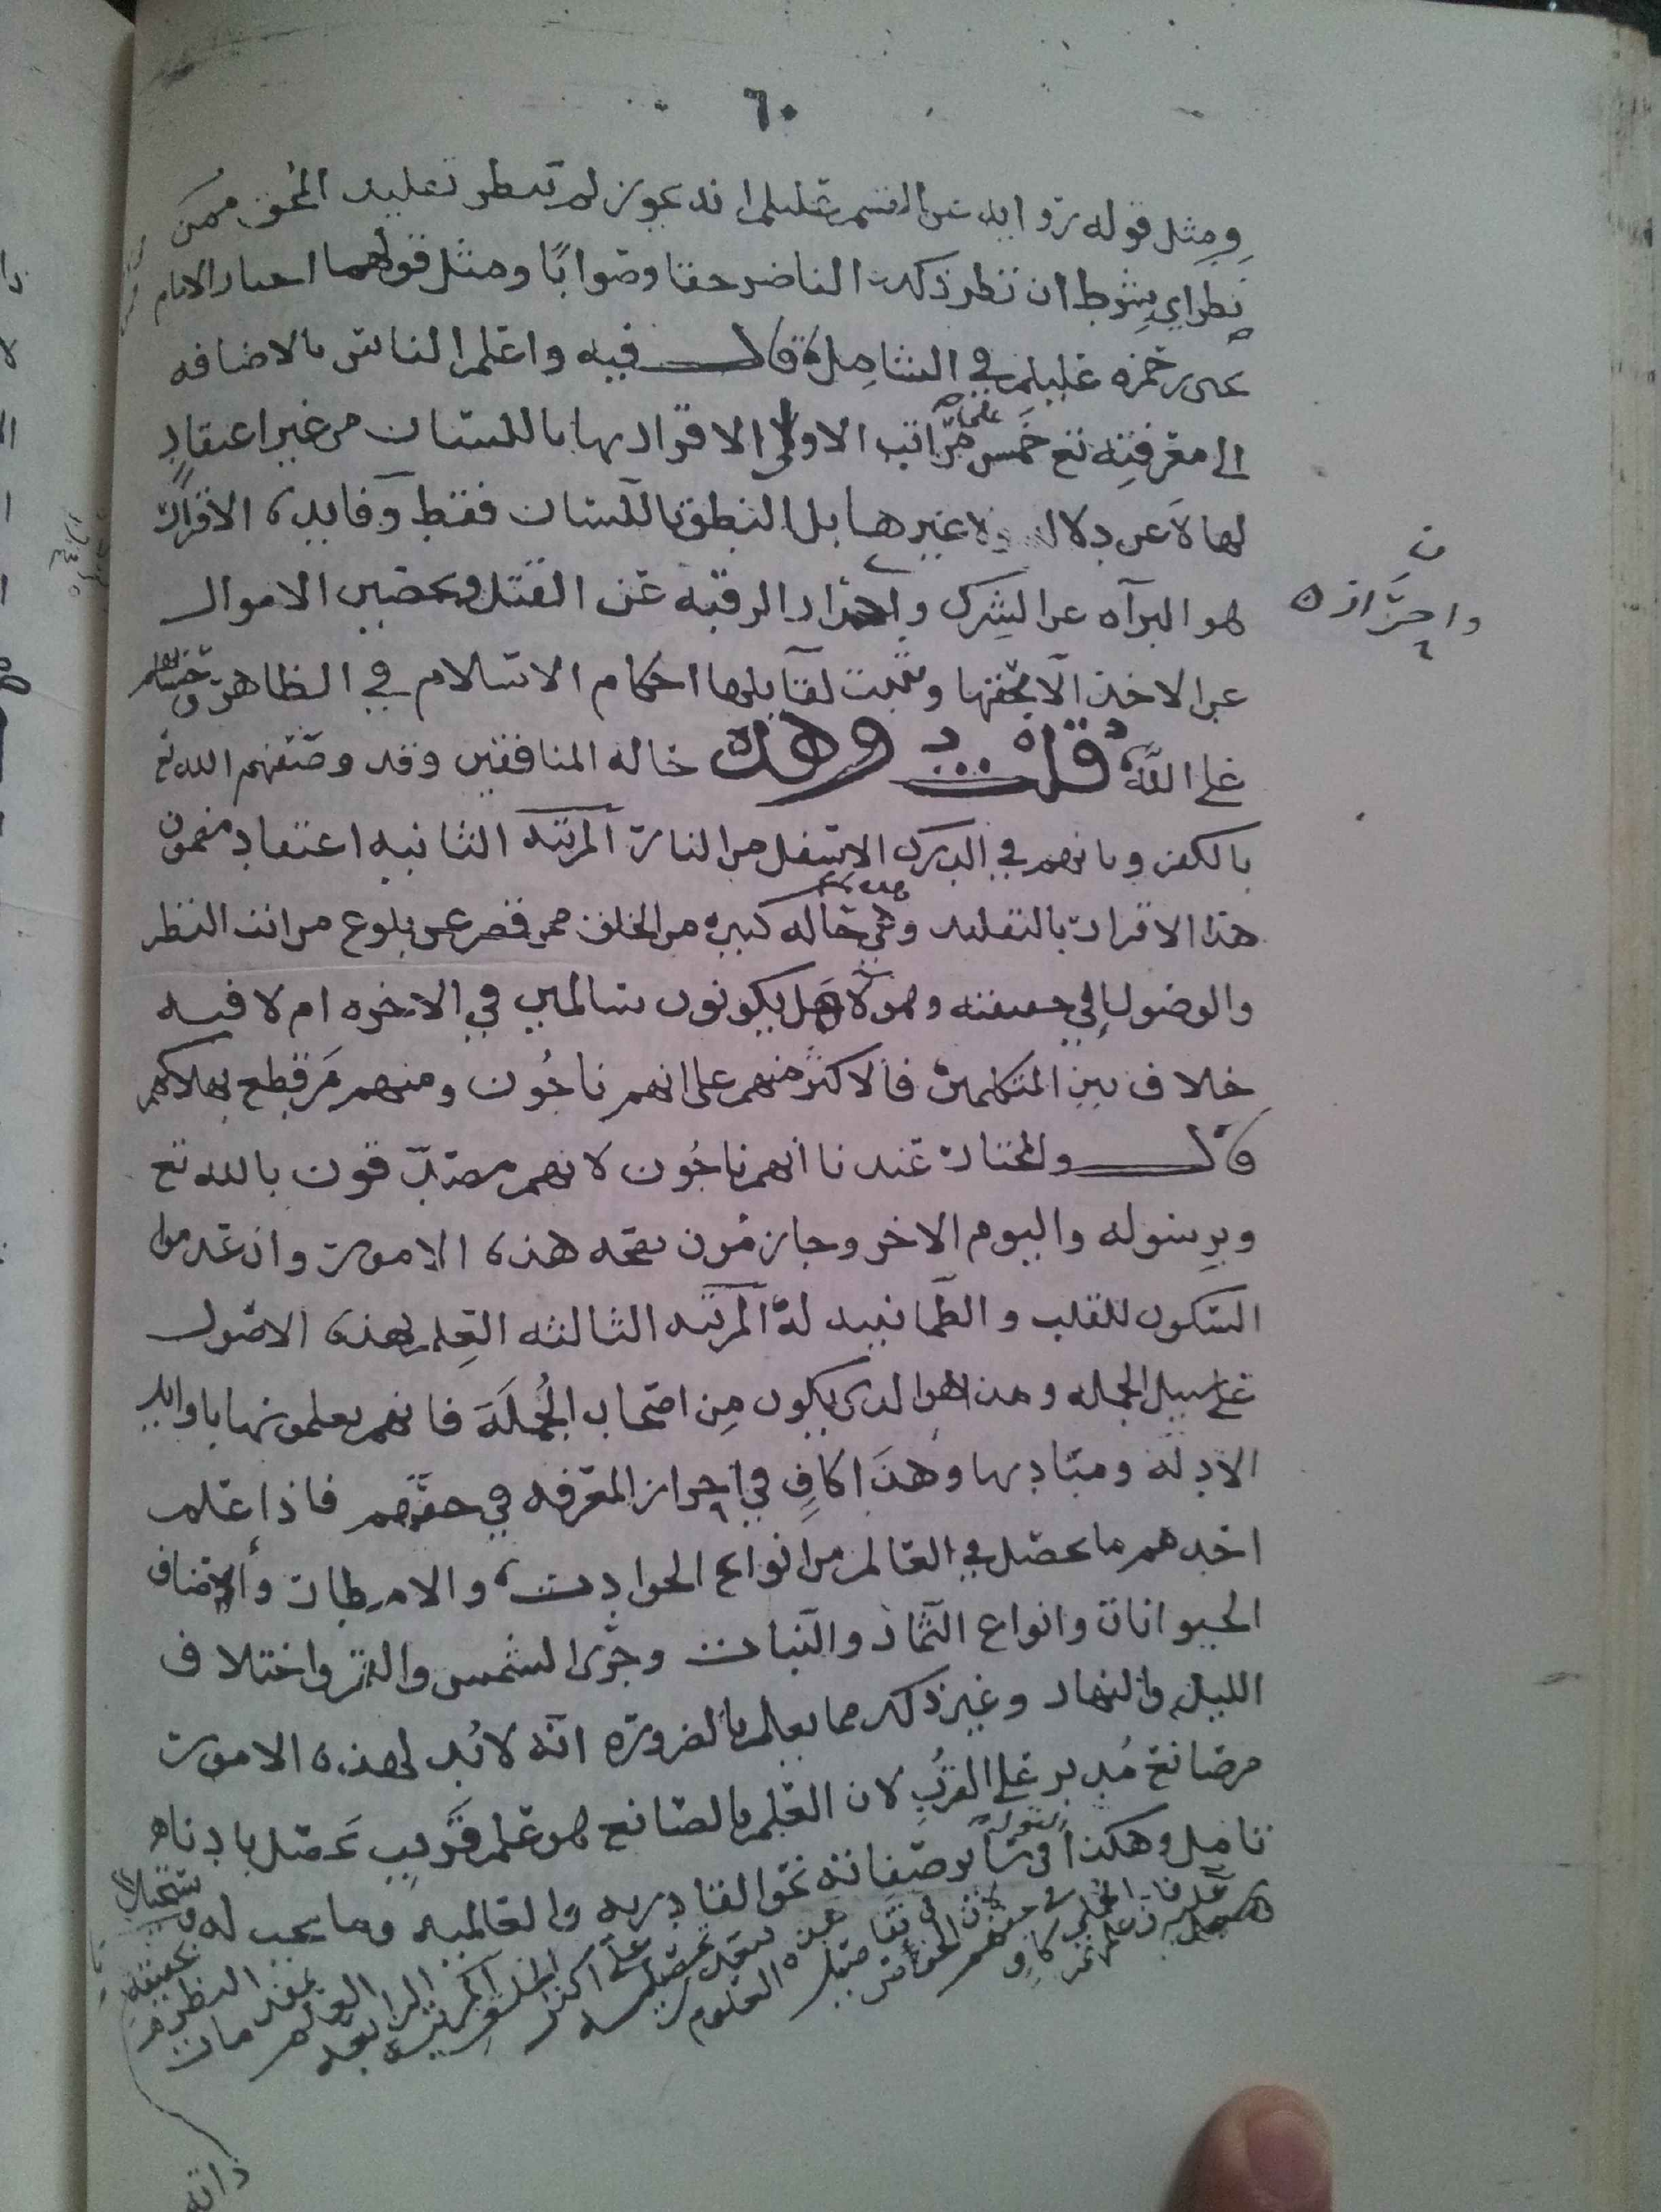 ٦٠
ومثل قوله رواية عن القسم عليلم انه يجوز لم ينظر تقليد المحق ممن
نظر اي بشرط ان نظر ذلك الناظر حقا وصوابا ومثل قولهما اختار الامام
يحيى بن حمزه عليلم في الشامل قال فيه واعلم ان الناس بالاضافه
الى معرفته تع على خمس مراتب الاولى الاقرار بها باللسان من غير اعتقاد
لها لا عن دلاله ولا غيرها بل النطق باللسان فقط وفايده الاقرار
هو البرآه عن الشرك واحراز الرقبه عن القتل وتحصين الاموال
واحراز ه
عن الاخذ الا بحقها ويثبت لقايلها احكام الاسلام في الظاهر وحسابهم
على الله قلت وهذه حاله المنافقين وقد وصفهم الله تع
بالكفر وبانهم في الدرك الاسفل من النار المرتبه الثانيه اعتقاد مضمون
هذا الاقرار بالتقليد وهذه حاله كبيره من الخلق ممن قصر عن بلوغ مراتب النظر
والوصول الى حقيقته وهولآ هل يكونون سالمين في الاخره ام لا فيه
خلاف بين المتكلمين فالاكثر منهم على انهم ناجون ومنهم من قطع بهلاكهم
قال والمختار عندنا انهم ناجون لانهم مصدقون بالله تع
وبرسوله واليوم الاخر وجازمون بصحه هذه الامور وان عدموا
السكون للقلب والطمانينه له المرتبه الثالثه العلم بهذه الاصول
على سبيل الجمله وهذا هو الذى يكون من اصحاب الجمله فانهم يعلمونها باوايل
الادله ومباديها وهذا كاف في احراز المعرفه في حقهم فاذا علم
احدهم ما يحصل في العالم من انواع الحوادث والامطار واصناف
الحيوانات وانواع الثمار والنبات وجرى الشمس والقمر واختلاف
الليل والنهار وغير ذلك مما يعلم بالضروره انه لابد لهذه الامور
من صانع مدبر على القرب لان العلم بالصانع هو علم قريب يحصل بادنا
تامل وهكذا القول في ساير صفاته نحو القادريه والعالميه وما يجب له
ذاته